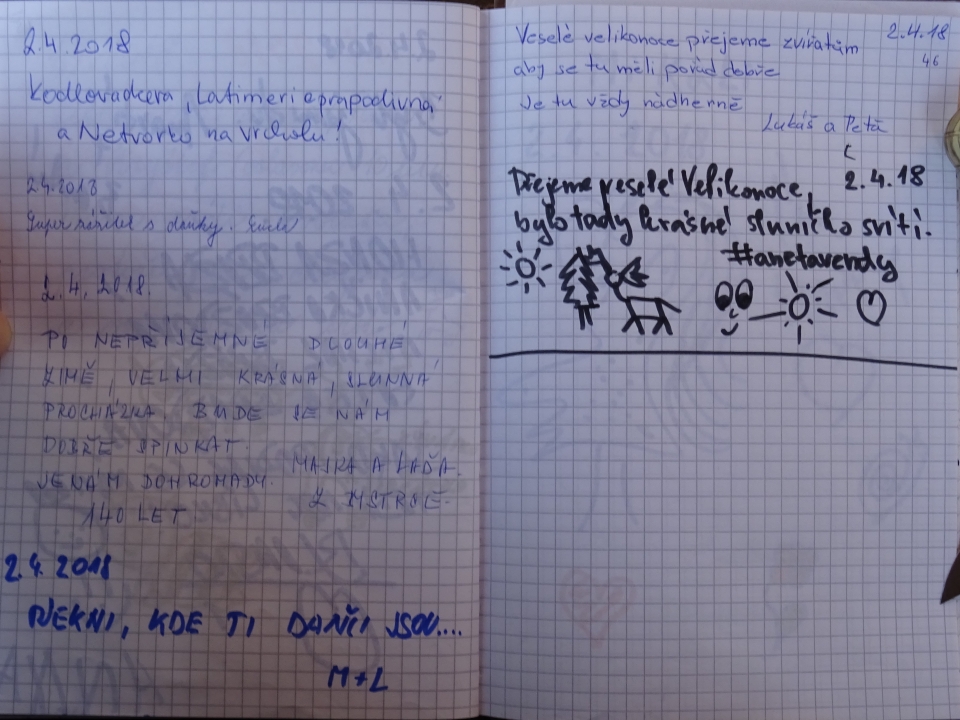 2.4.2018
Kodlovackera, Latimerie prapodivná
a Netvorko na vrcholu!
2.4.2018
Super zážitek s daňky.
2.4.2018.
PO NEPŘÍJEMNÉ DLOUHÉ
ZIMĚ, VELMI KRÁSNÁ, SLUNNÁ
PROCHÁZKA. BUDE SE NÁM
DOBŘE SPINKAT.
JE NÁM DOHROMADY
140 LET
MAJKA A LAĎA.
Z
2.4.2018
ŘEKNI, KDE TI DAŇCI JSOU....
M+L
2.4.18
46
Veselé velikonoce přejeme zvířatům
aby se tu měli pořád dobře
Je tu vždy nádherně
Lukáš a Petă
2.4.18
Přejeme veselé Velikonoce,
bylo tady krásné sluníčko svítí.
#anetavendy